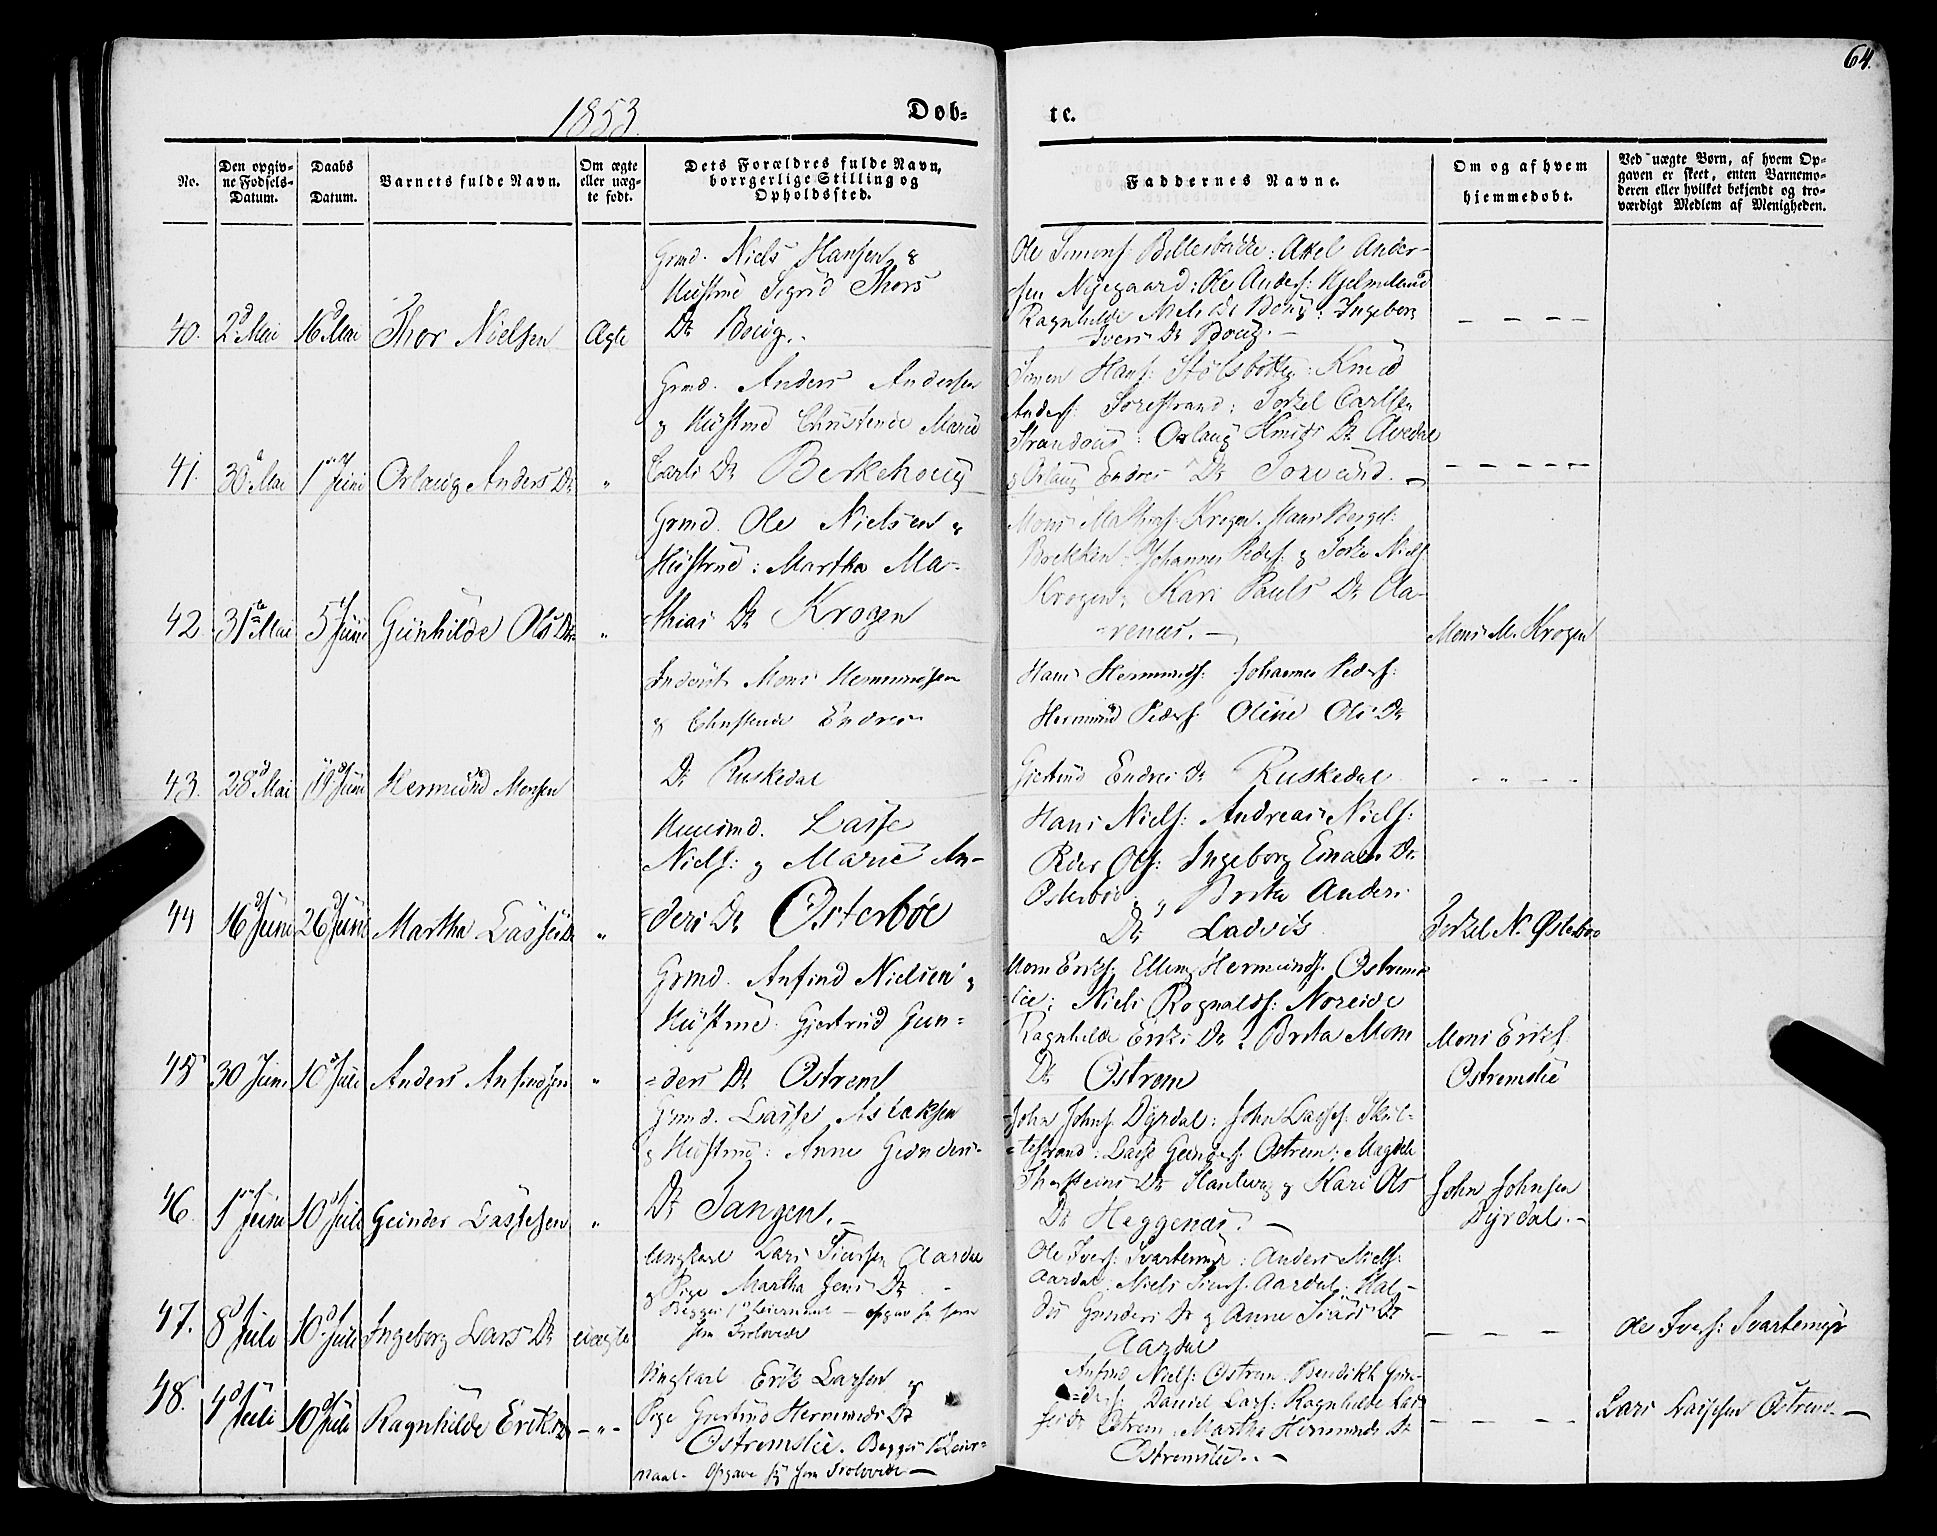 64.
1853.
Døb-
te.
No.
Den opgiv-
ne Fødsels-
Datum.
Daabs
Datum.
Barnets fulde Navn.
Om ægte
eller uæg-
te født.
Dets Forældres fulde Navn,
borrgerlige Stilling og
Opholdssted.
Faddernes Navne.
Om og af hvem
hjemmedøbt.
Ved uægte Børn, af hvem Op-
gaven er skeet, enten Barnemo-
deren eller hvilket bekjendt og tro-
værdigt Medlem af Menigheden.
40. 2d Mai 16d Mai Thor Nielsen Ægte
Grmd. Niels Hansen &
Hustrue Sigrid Thors
Dr Boug.
Ole Simons:
Axel Ander-
sen Nÿegaard: Ole Anders: Hjelmeland
Ragnhilde Niels Dr Boug. Ingeborg
Ivers Dr Boug.
41. 30d Mai 1ste Juni Orlaug Anders Dr "
Grmd. Anders Andersen
& Hustrue Christende Marie
Carls Dr Berkehoug
Simen Hans: Stølsbotten: Knud
Anders: Torestrand: Torkel Carlsen
Orlaug Knuts Dr
& Orlaug Endres Dr
42. 31te Mai 5te Juni Gunhilde Ols Dr "
Grmd. Ole Nielsen &
Hustrue: Martha Ma-
thias Dr Krogen
Mons Mathias: Krogen.
Brekken: Johannes Peders: & Torke Niels
Krogen: Kari Pauls Dr Aa-
renæs.
Mons M. Krogen
43. 28d Mai 19d Juni Hermund Monsen
Inderst Mons Hermundsen
& Christende Endres
Dr Ruskedal
Hans Hermunds: Johannes Peders:
Hermund Peders: Oline Ols Dr
Gjertrud Endres Dr Ruskedal
44 16d Juni 26d Juni Martha Lasse Dr "
Huusmd. Lasse
Niels: & Marie An-
ders Dr Østerbøe
Hans Niels: Andreas Niels:
Peder Ols: Ingeborg Einars Dr
Østerbøe & Brita Anders
Dr Ladvik
Torkel N. Østerbøe
45 30 Juni 10d Juli Anders Anfindsen "
Grmd. Anfind Nielsen &
Hustrue Gjertrud Gun-
ders Dr Ostrem
Mons Eriks: Elling Hermunds. Ostrems-
lie: Niels Rognalds: Noreide
Ragnhilde Eriks Dr & Brita Mons
Dr Ostrem
Mons Eriks:
Ostremslie
46. 1ste Juni 10d Juli Gunder Lassesen "
Grmd. Lasse Aslaksen
& Hustrue: Anne Gunders
Dr Tangen.
John Johns: Dÿrdal: John Lasses:
Lasse Gunders: Ostrem: Magdele
Thorsteins Dr & Kari Ols
Dr Heggenæs.
John Johnsen
Dÿrdal.
47. 8d Juli 10d Juli Ingeborg Lars Dr uægte
Ungkarl Lars Siursen Aardal
& Pige Martha Jens Dr
Begges 1ste Leiermaal - opgav sig som
som Trolovede
Ole Ivers: Svartemyr: Anders Niels:
Aardal: Niels Siurs: Aardal: Hal-
dis Gunders Dr & Anne Siurs Dr
Aardal
Ole Ivers: Svartemyr
48. 4d Juli 10d Juli Ragnhilde Eriks Dr - " -
Ungkarl Erik Larsen &
Pige Gjertrud Hermunds Dr
Ostremslie. Begges 1ste Leier-
maal. Opgave sig som Trolovede
Anfind Niels: Ostrem. Bendikt Gun-
ders: Daniel Lars: Ragnhilde Las-
ses Dr Ostrem. Martha Hermunds Dr
Ostremslie.
Lars Ostrem